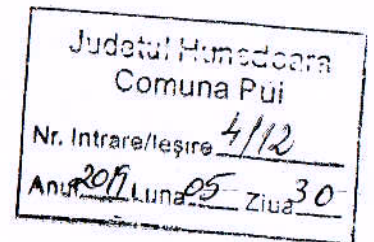 Județul Hunedoara
Comuna Pui
Nr. Intrare/Ieșire 4112
Anul 2019 Luna 05 Ziua 30